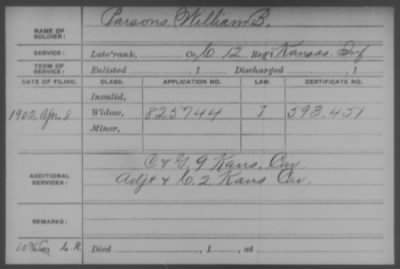 NAME OF SOLDIER: Parsons, William B.
SERVICE: Late rank, Co. C 12 Reg't Kansas Inf
TERM OF SERVICE: Enlisted , 1 Discharged , 1
DATE OF FILING. CLASS. APPLICATION NO. LAW. CERTIFICATE NO.
Invalid,
1905, Apr. 8 Widow, 825744 I 593.451
Minor,
C & G. 9 Kans. Cav
ADDITIONAL SERVICES: Adjt & C. 2 Kans Cav.
REMARKS:
Died , 1 , at